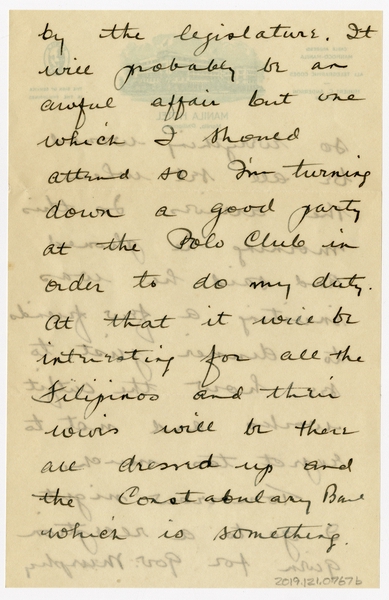 by the legislature. It
will probably be an
awful affair but one
which I should
attend so I'm turning
down a good party
at the Polo Club in
order to do my duty.
At that it will be
interesting for all the
Filipinos and their
wives will be there
all dressed up and
the Constabulary Band
which is something.
2019.121.07676